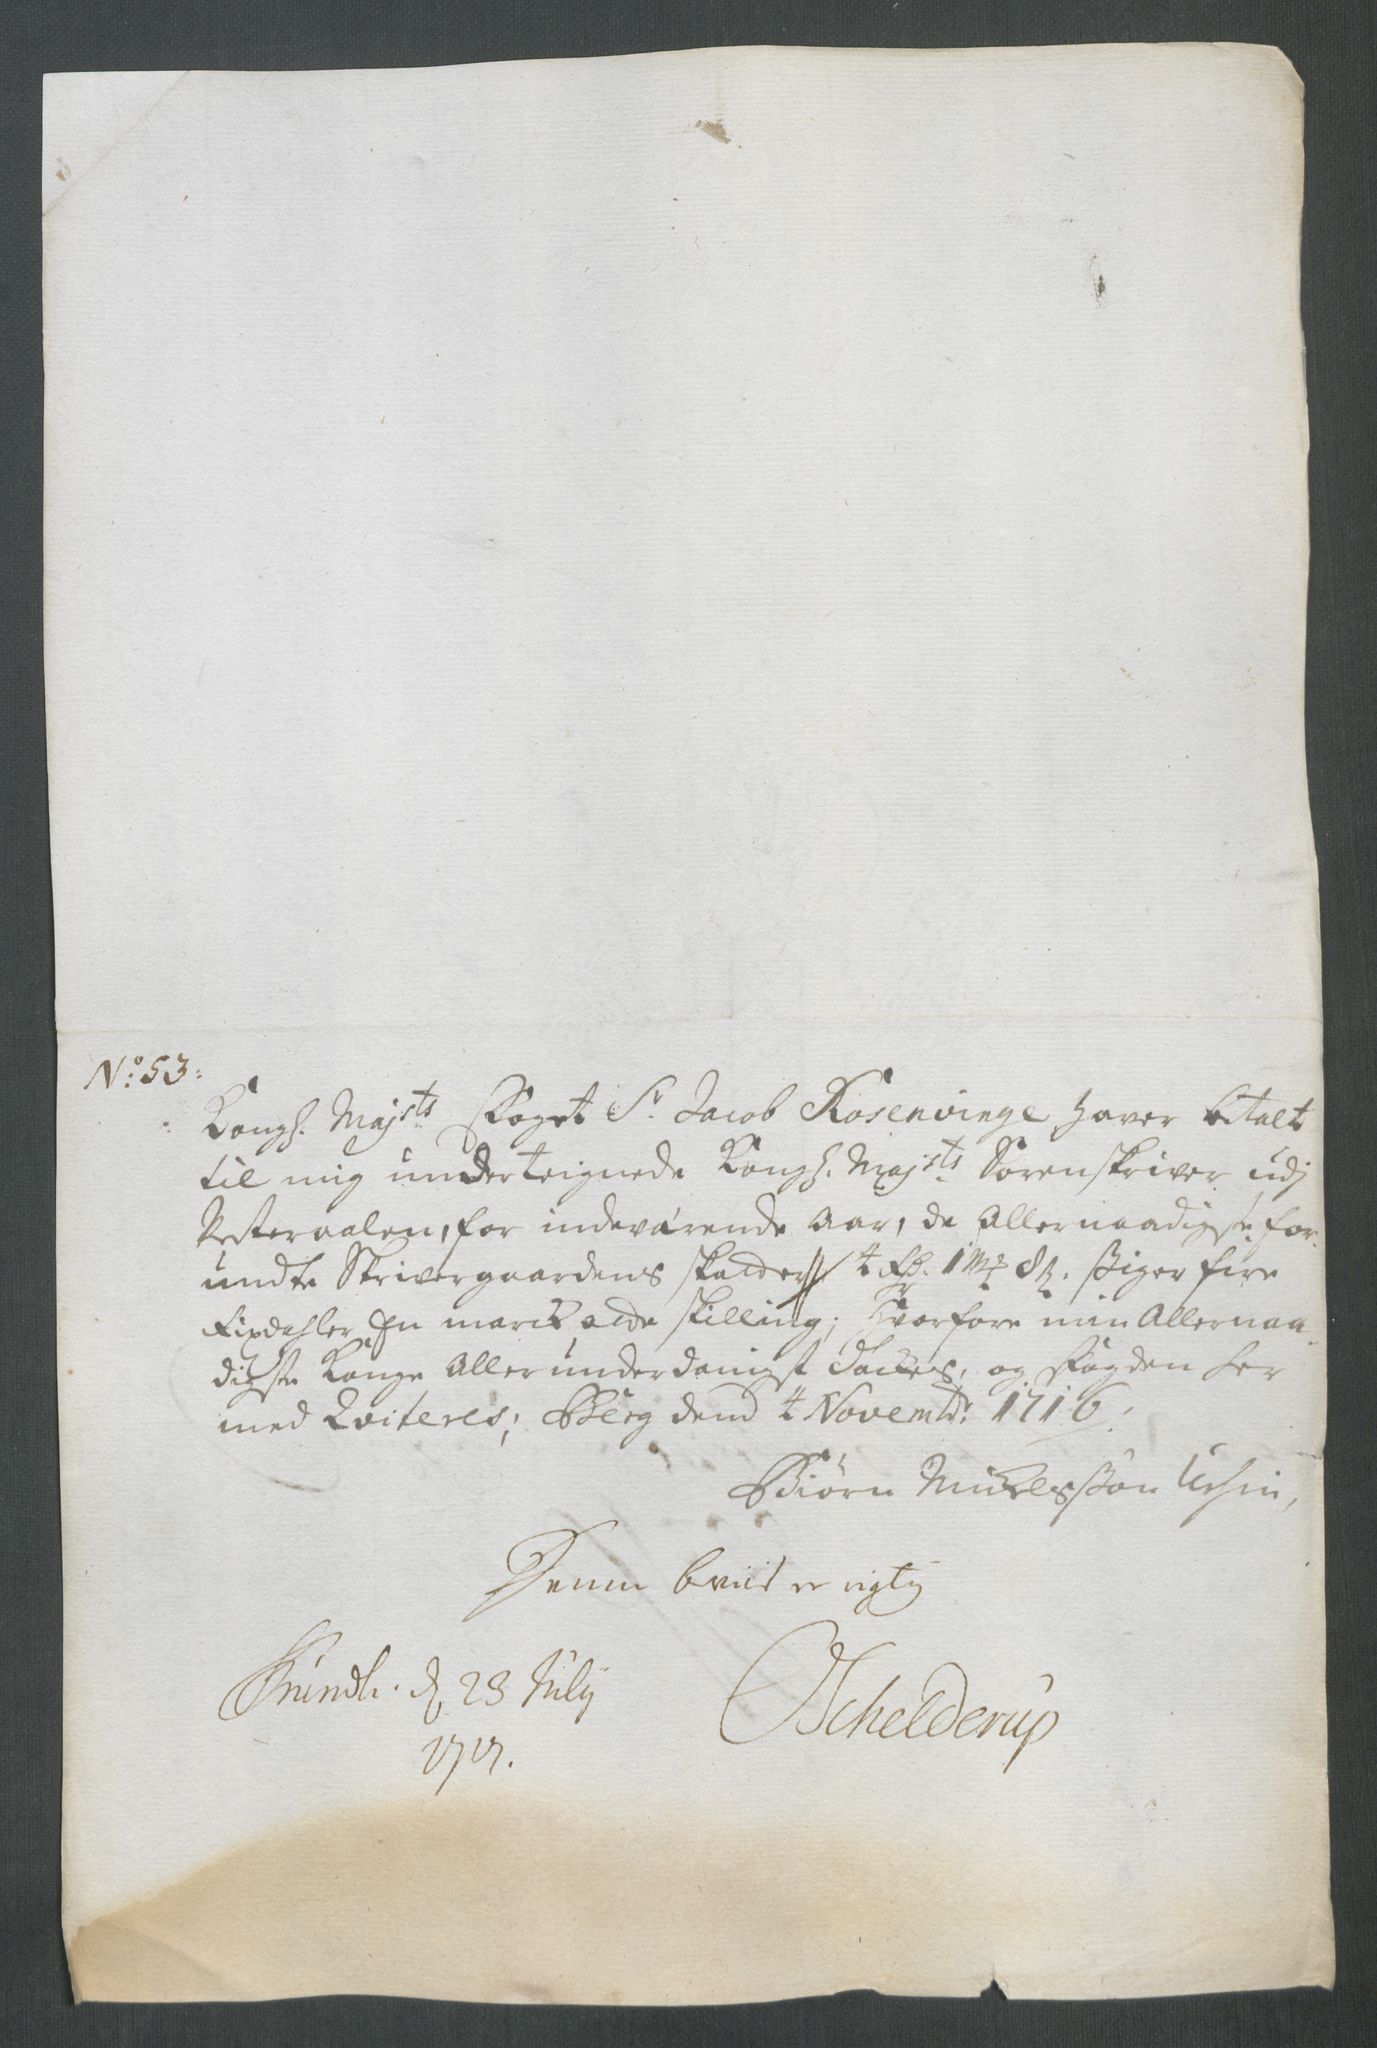 No: 53:
Kongl. Majsts Foget Sr. Jacob Rosenvinge haver betalt
til mig underteignede Kongl. Majsts Sorenskriver udj
Vesteraalen, for indeværende Aar, de Allernaadigste for-
undte Skrivergaardens skatter 4 Rd. 1 mk 8 s. siger fire
Rixdahler En marck otte skilling; Hvorfore min Allernaa-
digste Konge Allerunderdanigst tackes, og fogden her
med Qviteres; Berg dend 4 Novembr: 1716.
Biørn Mickelssøn
Denne beviis er rigtig
Trundh. d. 23 Julij
1717.
Schelderup